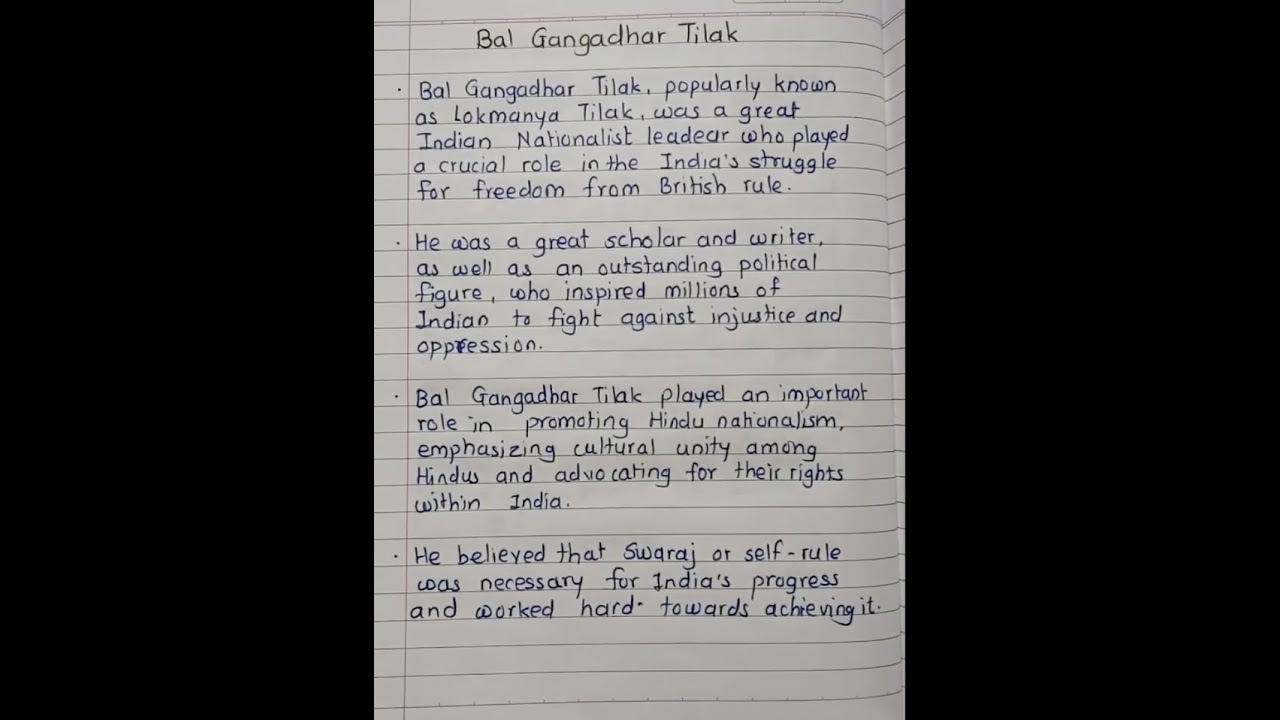 Bal Gangadhar Tilak
· Bal Gangadhar Tilak, popularly known
as Lokmanya Tilak, was a great
Indian Nationalist leadear who played
a crucial role in the India's struggle
for freedom from British rule.
· He was a great scholar and writer,
as well as an outstanding political
figure, who inspired millions of
Indian to fight against injustice and
oppression.
· Bal Gangadhar Tilak played an important
role in promoting Hindu nationalism,
emphasizing cultural unity among
Hindus and advocating for their rights
within India.
· He believed that Swaraj or self-rule
was necessary for India's progress
and worked hard towards achieving it.